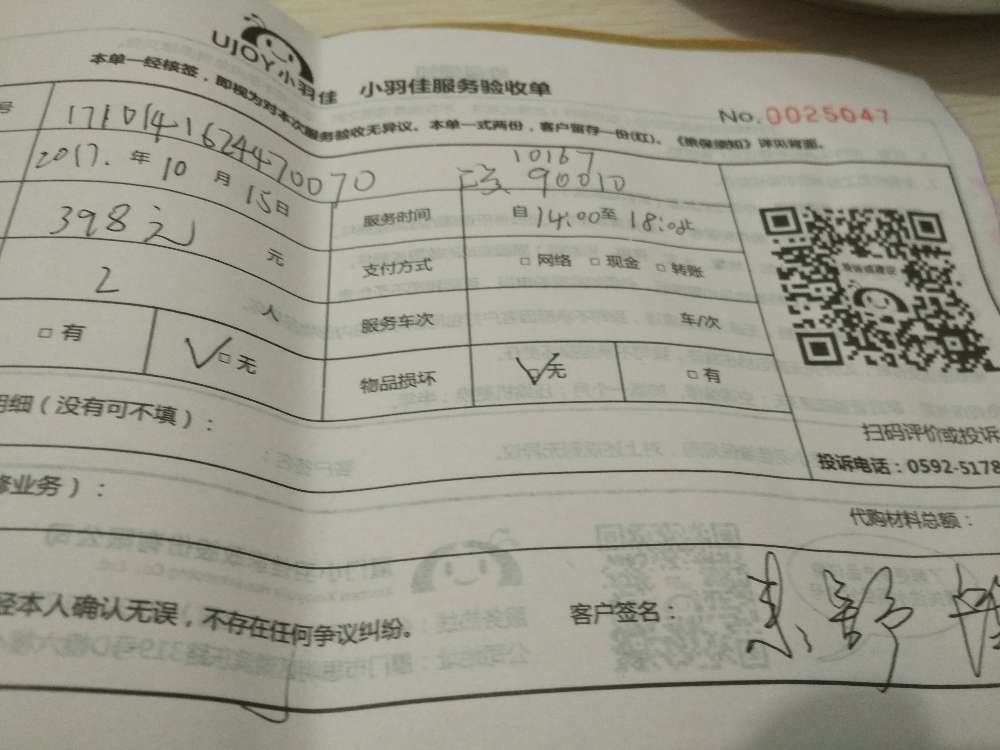 UJOY小羽佳
小羽佳服务验收单
No.0025047
本单一经核签，即视为对本次服务验收无异议。本单一式两份，客户留存一份(红)。《质保须知》详见背面。
号 1710141624470070
10167
90010
2017. 年 10 月 15 日
服务时间 自 14:00 至 18:00 止
398元 元
支付方式 □ 网络 □ 现金 □ 转账
2 人
服务车次 车/次
□ 有 □ 无
物品损坏 □ 无 □ 有
投诉或建议
扫码评价或投诉
投诉电话：0592-5178
明细（没有可不填）：
修业务）：
代购材料总额：
经本人确认无误，不存在任何争议纠纷。
客户签名：